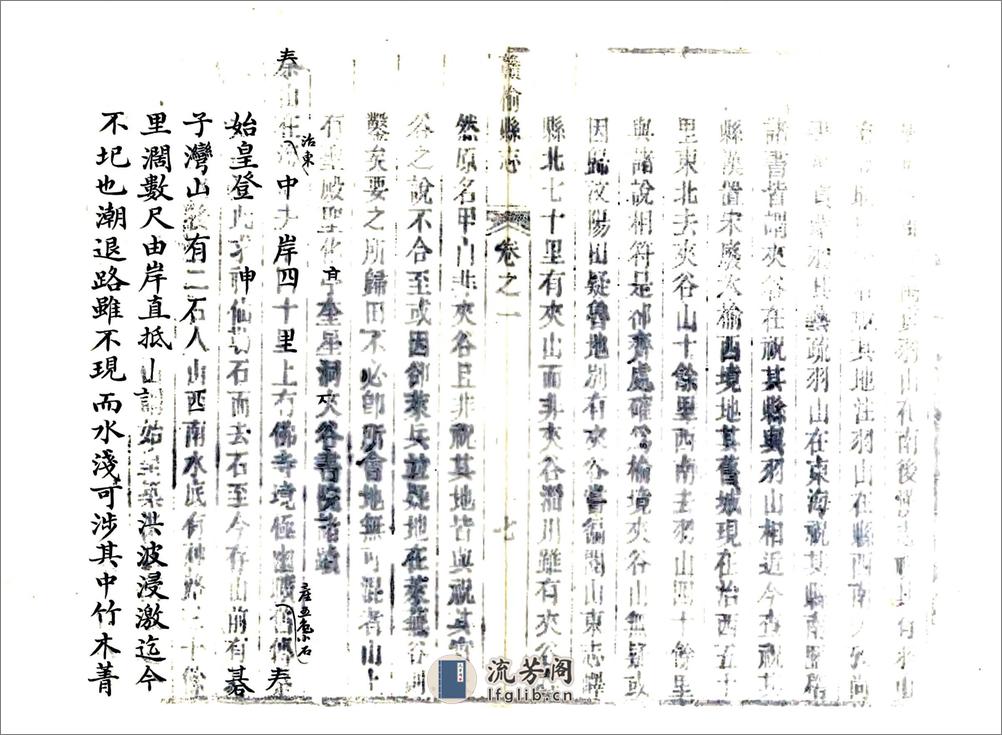 羽山在南後
其地注羽山在縣西南
疏羽山在東海祝其縣南
諸書皆謂夾谷在祝其縣與羽山相近今查祝其
縣漢置宋廢入榆西境地其舊城現在治西五十
里東北去夾谷山十餘里西南去羽山四十餘里
與諸說相符是卻齊處確為榆境夾谷山無疑或
因歸汶陽田疑魯地別有夾谷嘗徧閱山東志嶧
縣北七十里有夾山而非夾谷淄川雖有夾谷
贛榆縣志 卷之一 七
然原名甲山非夾谷且非祝其地皆與祝其
谷之說不合至或因卻萊兵並疑地在萊蕪谷則
鑿矣要之所歸田不必即所會地無可混者山上
石室殿聖化亭奎星洞夾谷書院諸蹟
秦山在治東中去岸四十里上有佛寺境極幽曠產五色小石舊傳秦
始皇登此求神仙勒石而去石至今存山前有碁
子灣山巔有二石人山西南水底有神路三十餘
里濶數尺由岸直抵山謂始皇築洪波浸激迄今
不圯也潮退路雖不現而水淺可涉其中竹木菁
流芳阁
lfglib.cn